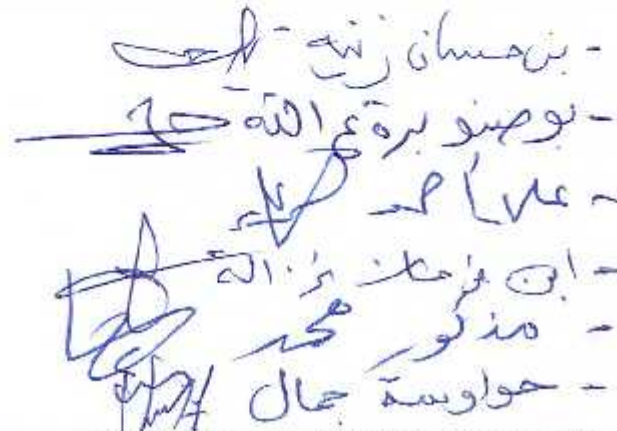 - بن حسان زينة
- بوصنوبرة ع الله
- علي أحمد
- ابن فرحات غزالة
- مذكور محمد
- حواوسة جمال